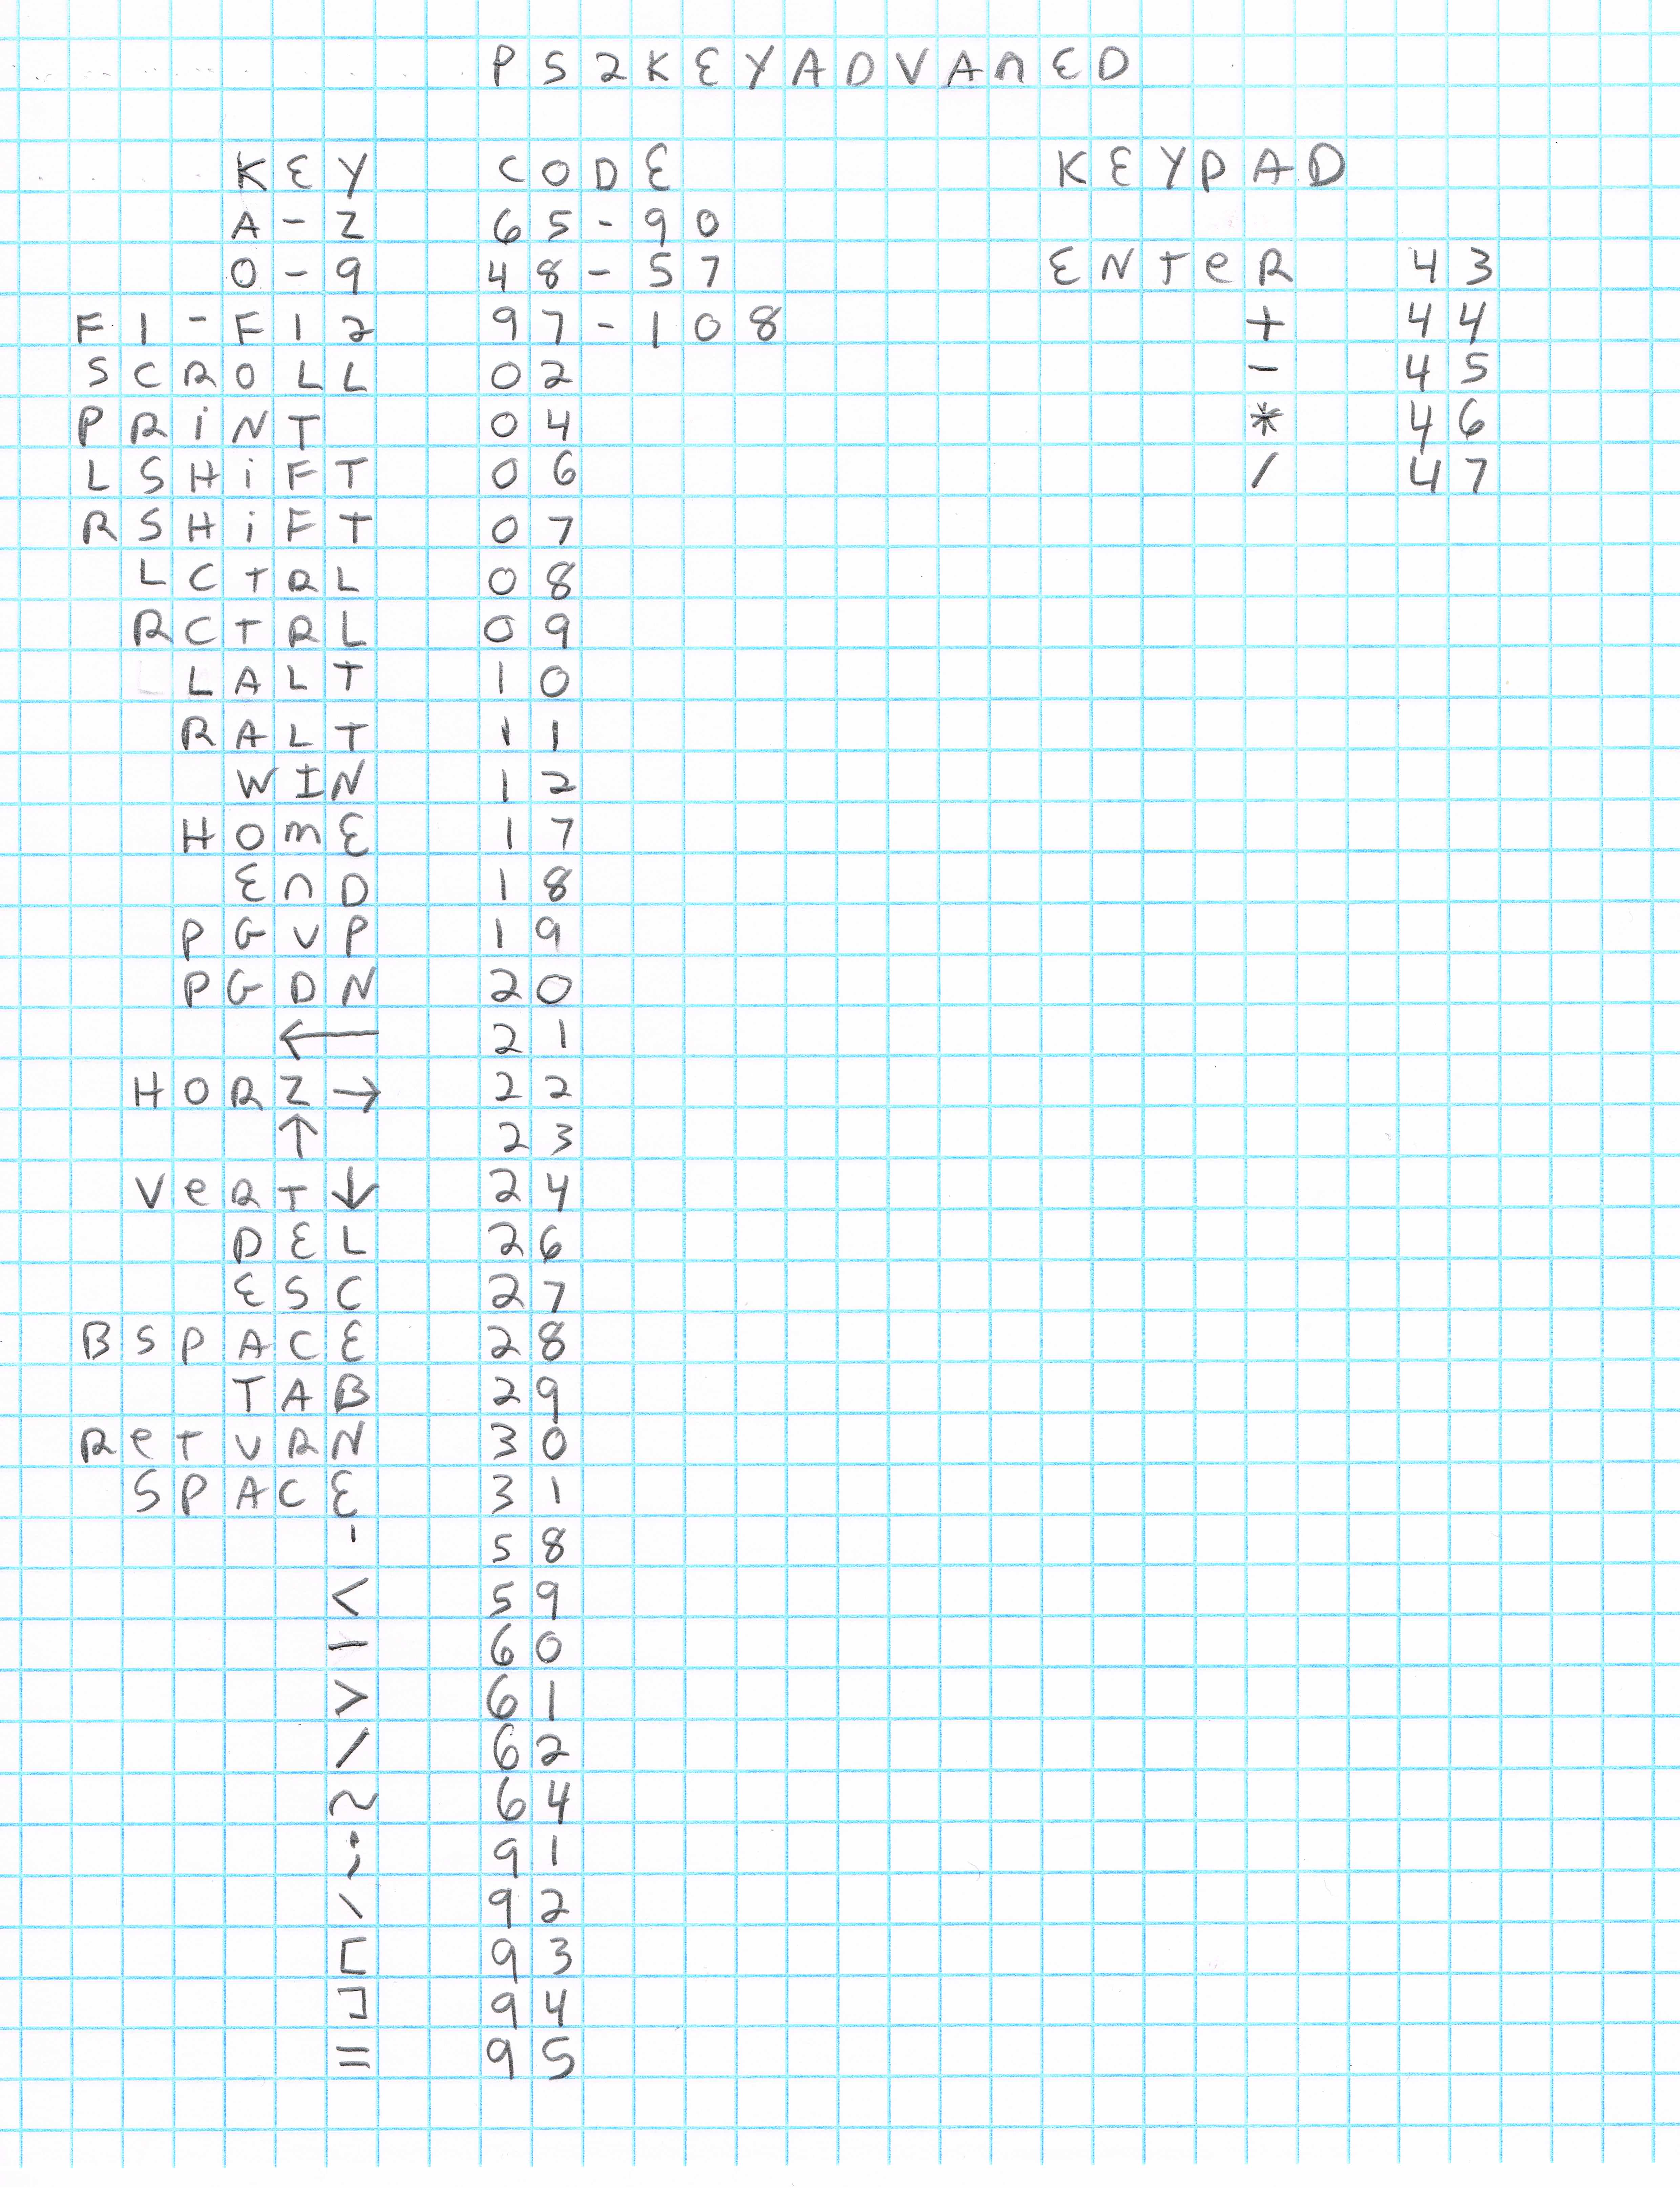 PS2KEYADVANED
KEY CODE KEYPAD
A-Z 65-90
0-9 48-57 ENTeR 43
F1-F12 97-108 + 44
SCROLL 02 - 45
PRiNT 04 * 46
LSHiFT 06 / 47
RSHiFT 07
LCTRL 08
RCTRL 09
LALT 10
RALT 11
WIN 12
HOmE 17
EnD 18
PGUP 19
PGDN 20
← 21
HORZ → 22
↑ 23
VeRT ↓ 24
DEL 26
ESC 27
BSPACE 28
TAB 29
ReTURN 30
SPACE 31
' 58
< 59
— 60
> 61
/ 62
~ 64
; 91
\ 92
[ 93
] 94
= 95